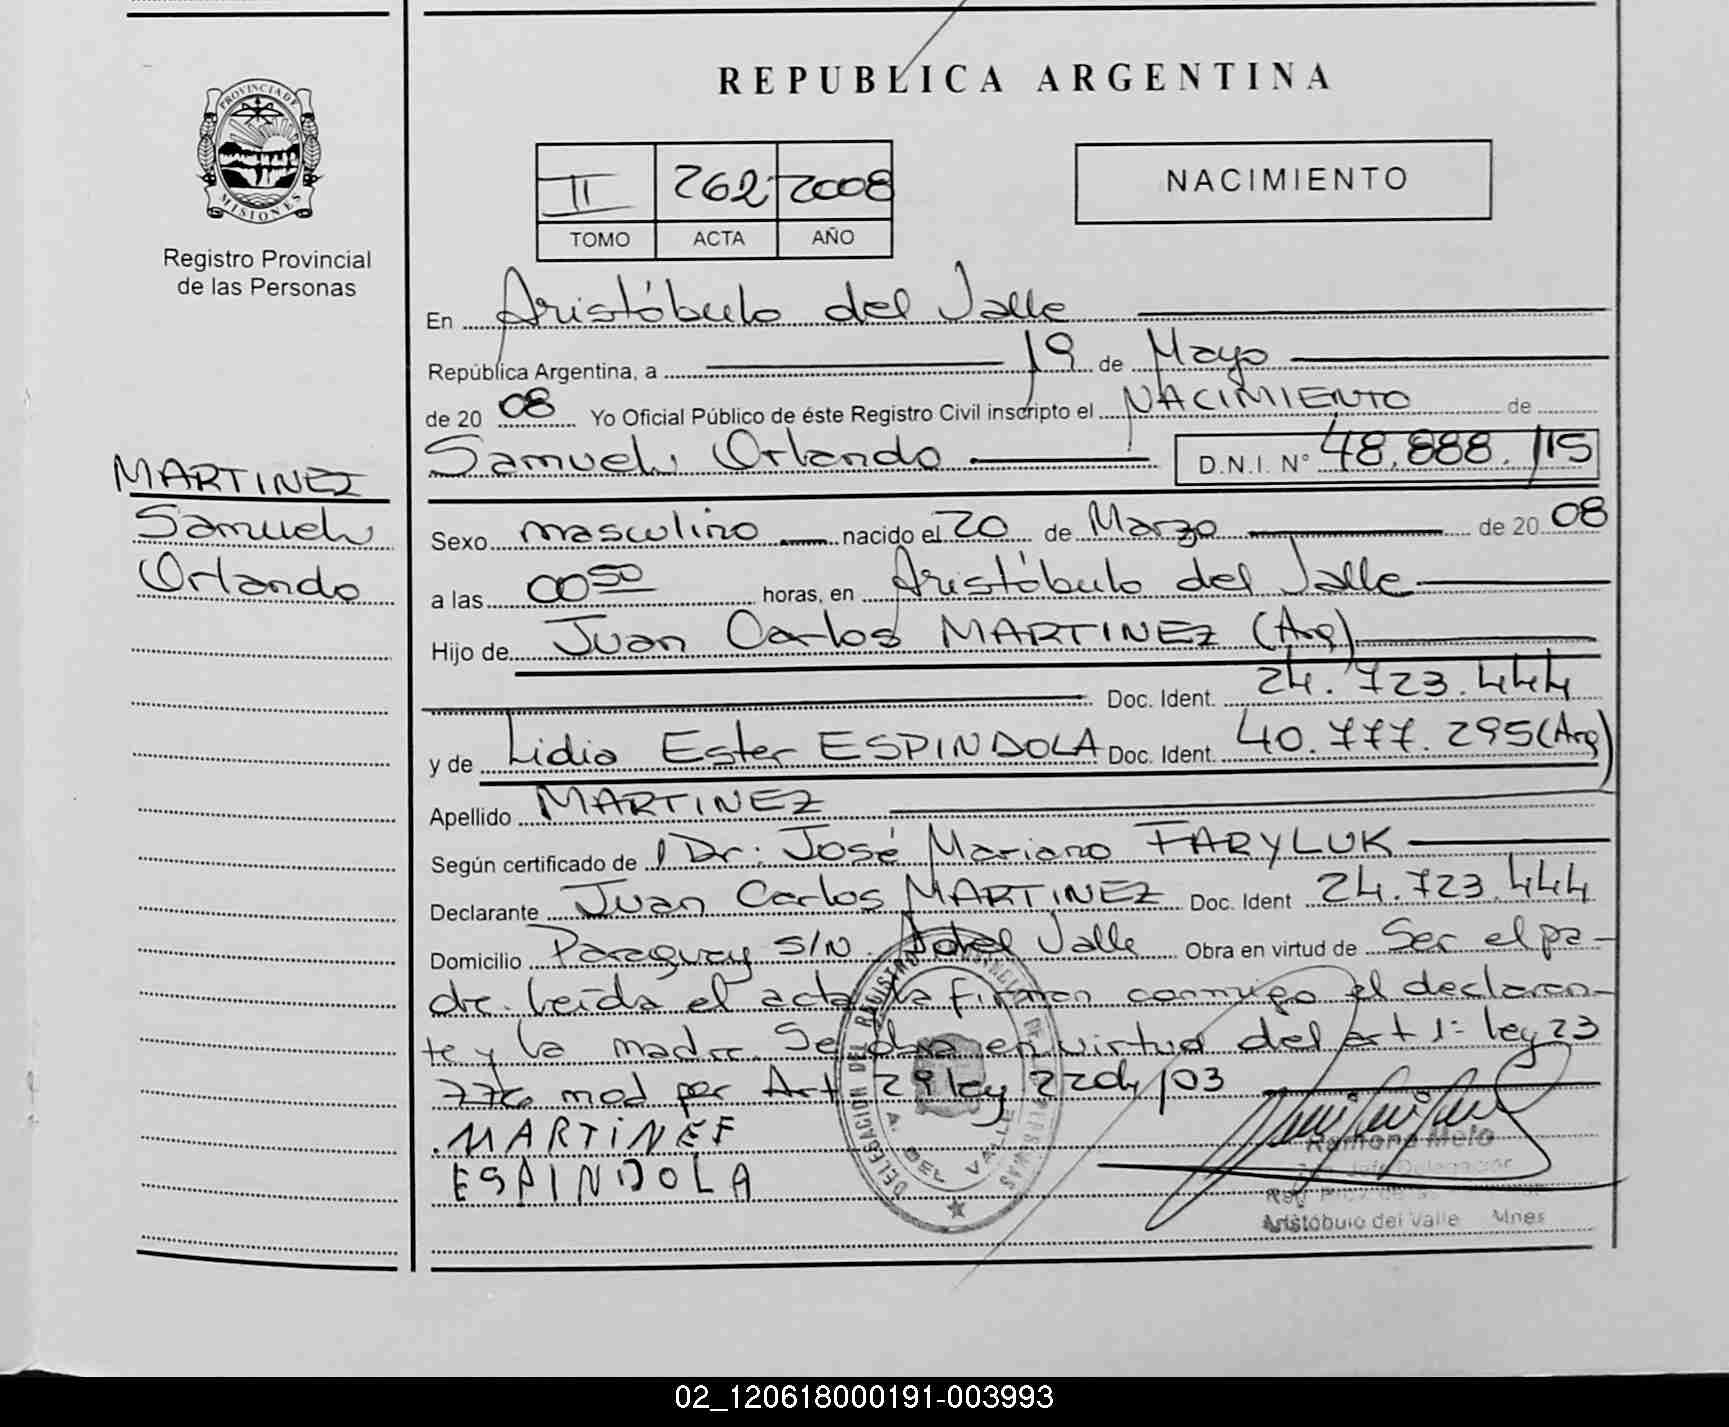 REPUBLICA ARGENTINA
PROVINCIA DE
MISIONES
Registro Provincial
de las Personas
II 262 2008
TOMO ACTA AÑO
NACIMIENTO
En Aristóbulo del Valle
República Argentina, a 19 de Mayo
de 20 08 Yo Oficial Público de éste Registro Civil inscripto el NACIMIENTO de
Samuel, Orlando D.N.I. N° 48.888.115
MARTINEZ
Samuel,
Orlando
Sexo masculino nacido el 20 de Marzo de 20 08
a las 00 50 horas, en Aristóbulo del Valle
Hijo de Juan Carlos MARTINEZ (Arg)
Doc. Ident. 24.723.444
y de Lidia Ester ESPINDOLA Doc. Ident. 40.777.295 (Arg)
Apellido MARTINEZ
Según certificado de Dr: José Mariano FARYLUK
Declarante Juan Carlos MARTINEZ Doc. Ident 24.723.444
Domicilio Paraguay S/N. A del Valle Obra en virtud de Ser el pa-
dre. Leída el acta la firman conmigo el declaran-
te y la madre. Se obra en virtud del art 1= ley 23
776 mod per Art 29 ley 2204/03
MARTINEZ
ESPINDOLA
DELEGACION DEL REGISTRO PROVINCIAL DE LAS PERSONAS
A. DEL VALLE
Ramona Melo
Jefe Delegacion
Aristóbulo del Valle Mnes
02_120618000191-003993